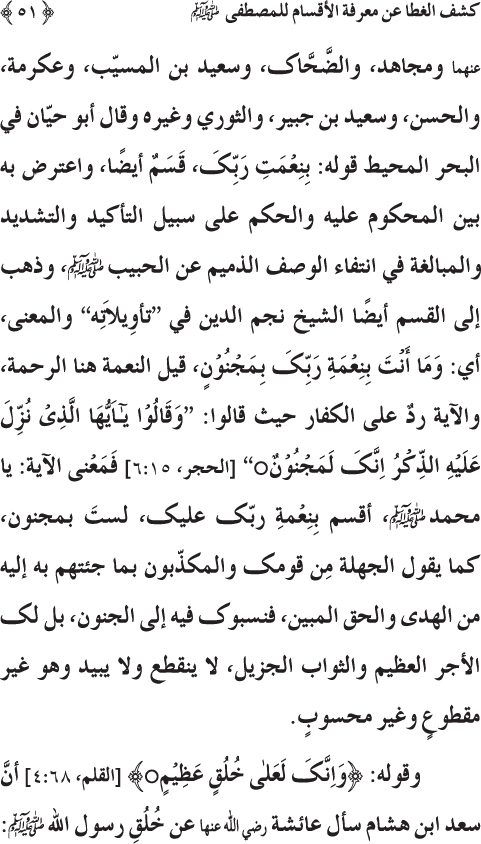 كشف الغطا عن معرفة الأقسام للمصطفى ﷺ ﴿ ٥١ ﴾
عنهما ومجاهد، والضَّحَّاک، وسعيد بن المسيّب، وعكرمة،
والحسن، وسعيد بن جبير، والثوري وغيره وقال أبو حيّان في
البحر المحيط قوله: بِنِعْمَتِ رَبِّکَ، قَسَمٌ أيضًا، واعترض به
بين المحكوم عليه والحكم على سبيل التأكيد والتشديد
والمبالغة في انتفاء الوصف الذميم عن الحبيب ﷺ، وذهب
إلى القسم أيضًا الشيخ نجم الدين في ”تأوِيلاتَِه“ والمعنى،
أي: وَمَا أَنْتَ بِنِعْمَةِ رَبِّکَ بِمَجْنُوْنٍ، قيل النعمة هنا الرحمة،
والآية ردٌ على الكفار حيث قالوا: ”وَقَالُوْا يٰۤاَيُّهَا الَّذِىْ نُزِّلَ
عَلَيْهِ الذِّكْرُ اِنَّکَ لَمَجْنُوْنٌ○“ [الحجر، ٦:١٥] فَمَعْنى الآية: يا
محمد ﷺ، أقسم بِنِعْمةِ ربّک عليک، لستَ بمجنون،
كما يقول الجهلة مِن قومک والمكذّبون بما جئتهم به إليه
من الهدى والحق المبين، فنسبوک فيه إلى الجنون، بل لک
الأجر العظيم والثواب الجزيل، لا ينقطع ولا يبيد وهو غير
مقطوعٍ وغير محسوبٍ.
وقوله: ﴿وَاِنَّکَ لَعَلٰى خُلُقٍ عَظِيْمٍ○﴾ [القلم، ٤:٦٨] أنَّ
سعد ابن هشام سأل عائشة رضي الله عنها عن خُلُقِ رسول الله ﷺ: